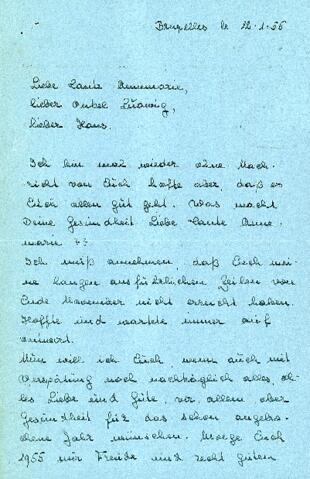 Bruxelles le 12.1.55
Liebe Tante Annemarie,
lieber Onkel Ludwig,
lieber Hans.
Ich bin mal wieder ohne Nach-
richt von Euch hoffe aber daß es
Euch allen gut geht. Was macht
Deine Gesundheit Liebe Tante Anne
marie ??
Ich muß annehmen daß Euch mei-
ne langen ausführlichen Zeilen von
Ende November nicht erreicht haben.
Hoffte und wartete immer auf
Antwort.
Nun will ich Euch wenn auch mit
Verspätung noch nachträglich alles, al-
les Liebe und Gute, vor allem aber
Gesundheit für das schon angebro-
chene Jahr wünschen. Moege Euch
1955 nur Freude und recht guten